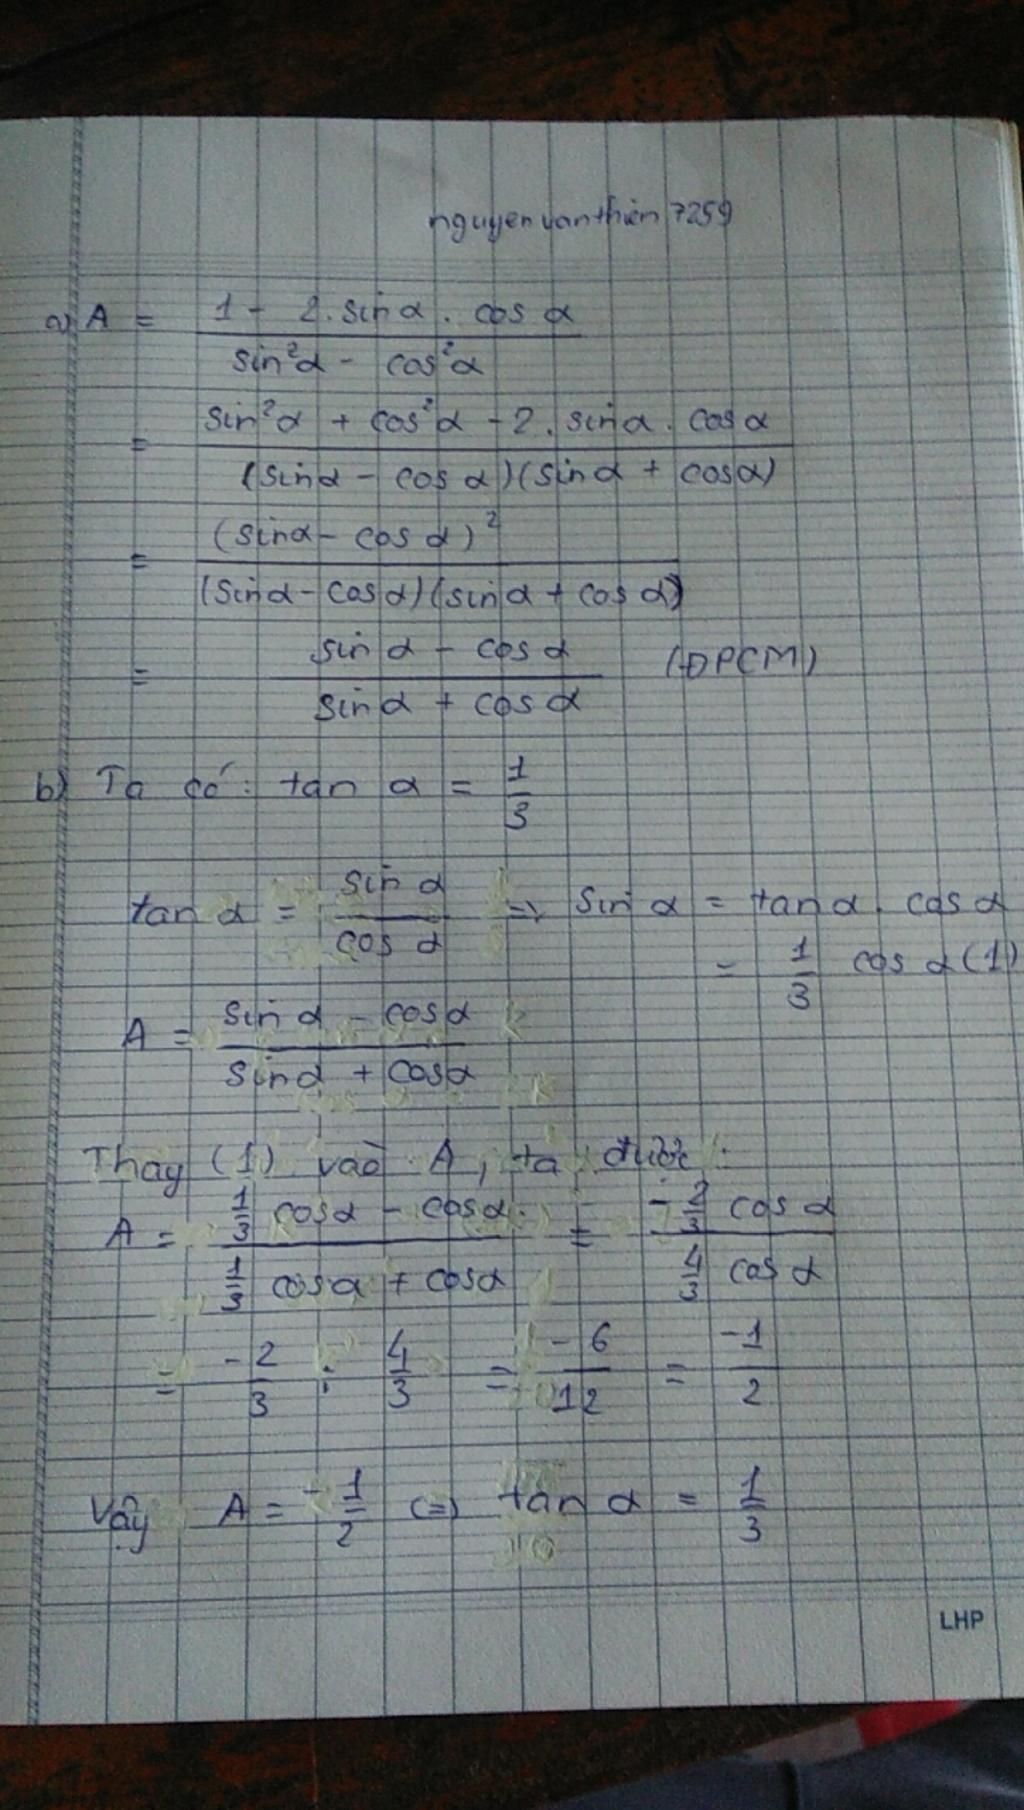 nguyenvanthien7259
a) A = (1 - 2.sin α . cos α) / (sin²α - cos²α)
= (sin²α + cos²α - 2. sin α . cos α) / ((sin α - cos α)(sin α + cos α))
= (sin α - cos α)² / ((sin α - cos α)(sin α + cos α))
= (sin α - cos α) / (sin α + cos α) (ĐPCM)
b) Ta có: tan α = 1/3
tan α = sin α / cos α => sin α = tan α . cos α
= 1/3 cos α (1)
A = (sin α - cos α) / (sin α + cos α)
Thay (1) vào A, ta được:
A = (1/3 cos α - cos α) / (1/3 cos α + cos α) = (-2/3 cos α) / (4/3 cos α)
= -2/3 : 4/3 = -6/12 = -1/2
Vậy A = -1/2 (=) tan α = 1/3
LHP